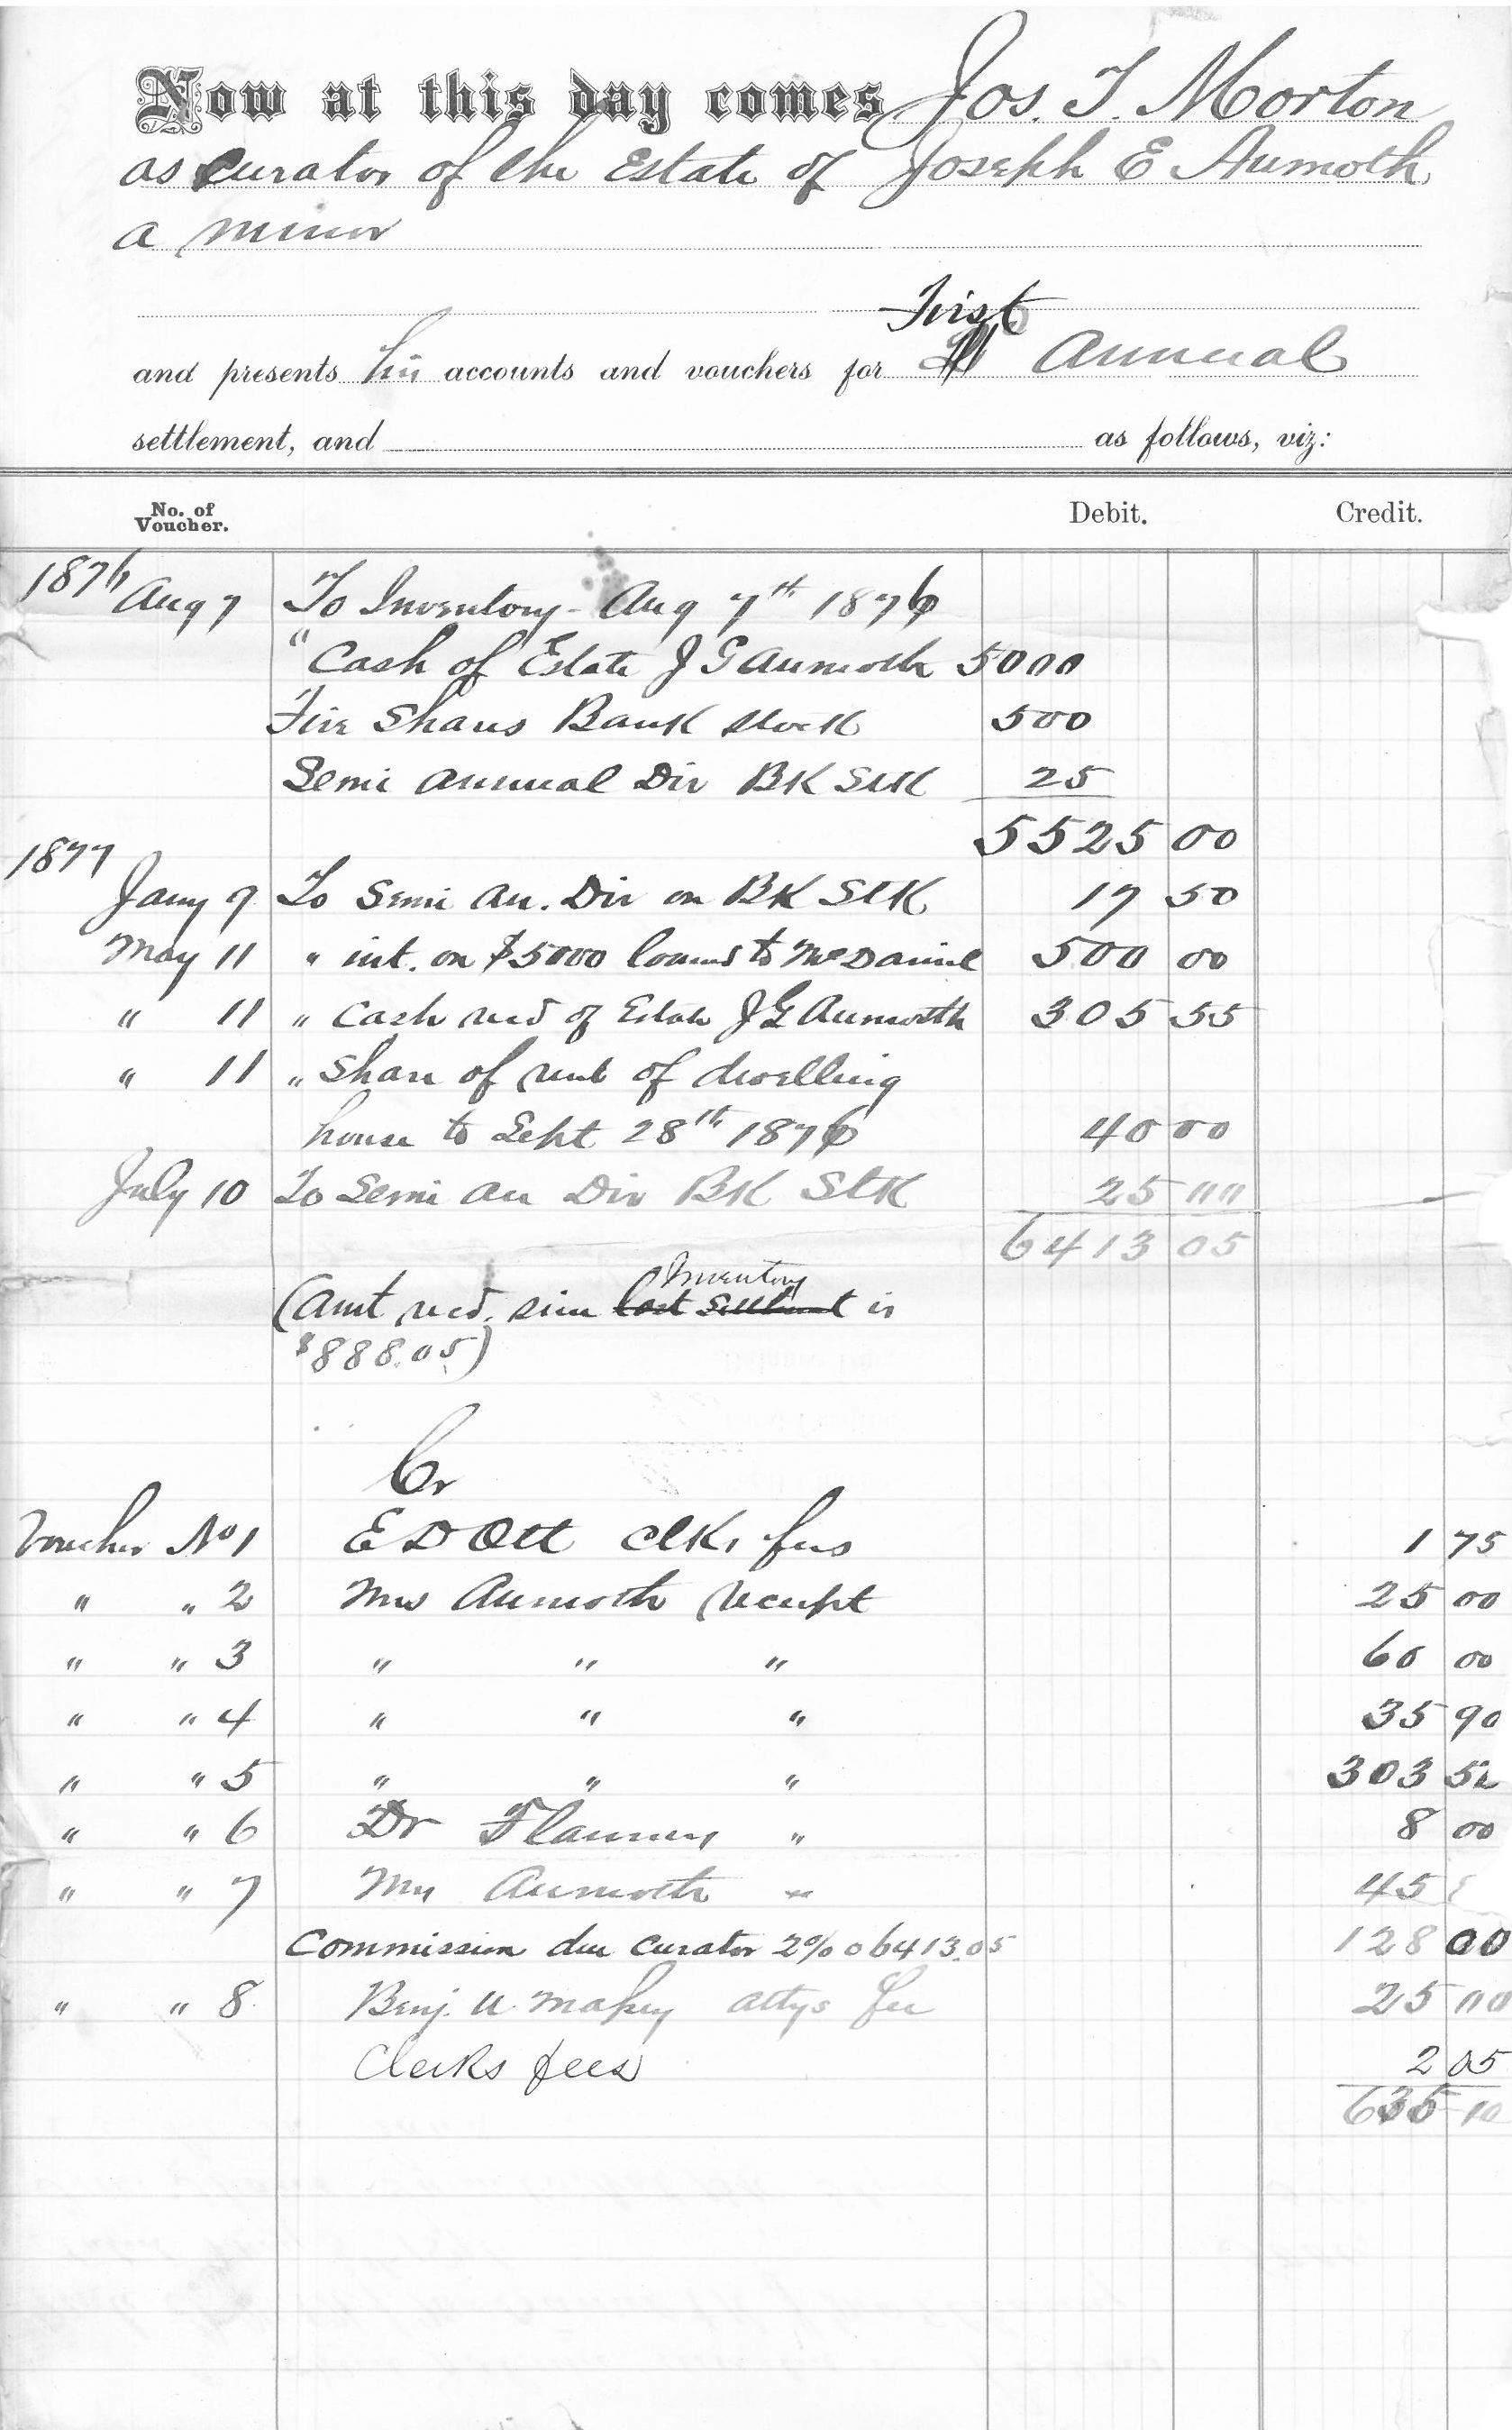 Now at this day comes Jos. T. Morton
as Curator of the Estate of Joseph E Aumoth
a minor
First
and presents his accounts and vouchers for Annual
settlement, and as follows, viz:
No. of Voucher. Debit. Credit.
1876 Aug 7 To Inventory - Aug 7th 1876
" Cash of Estate J G Aumoth 5000
Five Shares Bank stock 500
Semi Annual Div BK Stk 25
5525 00
1877
Jany 9 To Semi An. Div on BK Stk 17 50
May 11 " int. on $5000 loaned to McDaniel 500 00
" 11 " Cash recd of Estate J G Aumoth 305 55
" 11 " Share of rent of dwelling
house to Sept 28th 1876 40 00
July 10 To Semi an Div BK Stk 25 00
6413 05
Inventory
(Amt recd. since last settlement is
$888.05)
Cr
Voucher No 1 E D Ott Clks fees 1 75
" " 2 Mrs Aumoth receipt 25 00
" " 3 " " " 60 00
" " 4 " " " 35 90
" " 5 " " " 303 50
" " 6 Dr Flannery " 8 00
" " 7 Mrs Aumoth " 45
Commission due curator 2% o 6413.05 128 00
" " 8 Benj. U. Massey attys fee 25 00
Clerks fees 2 05
635 10